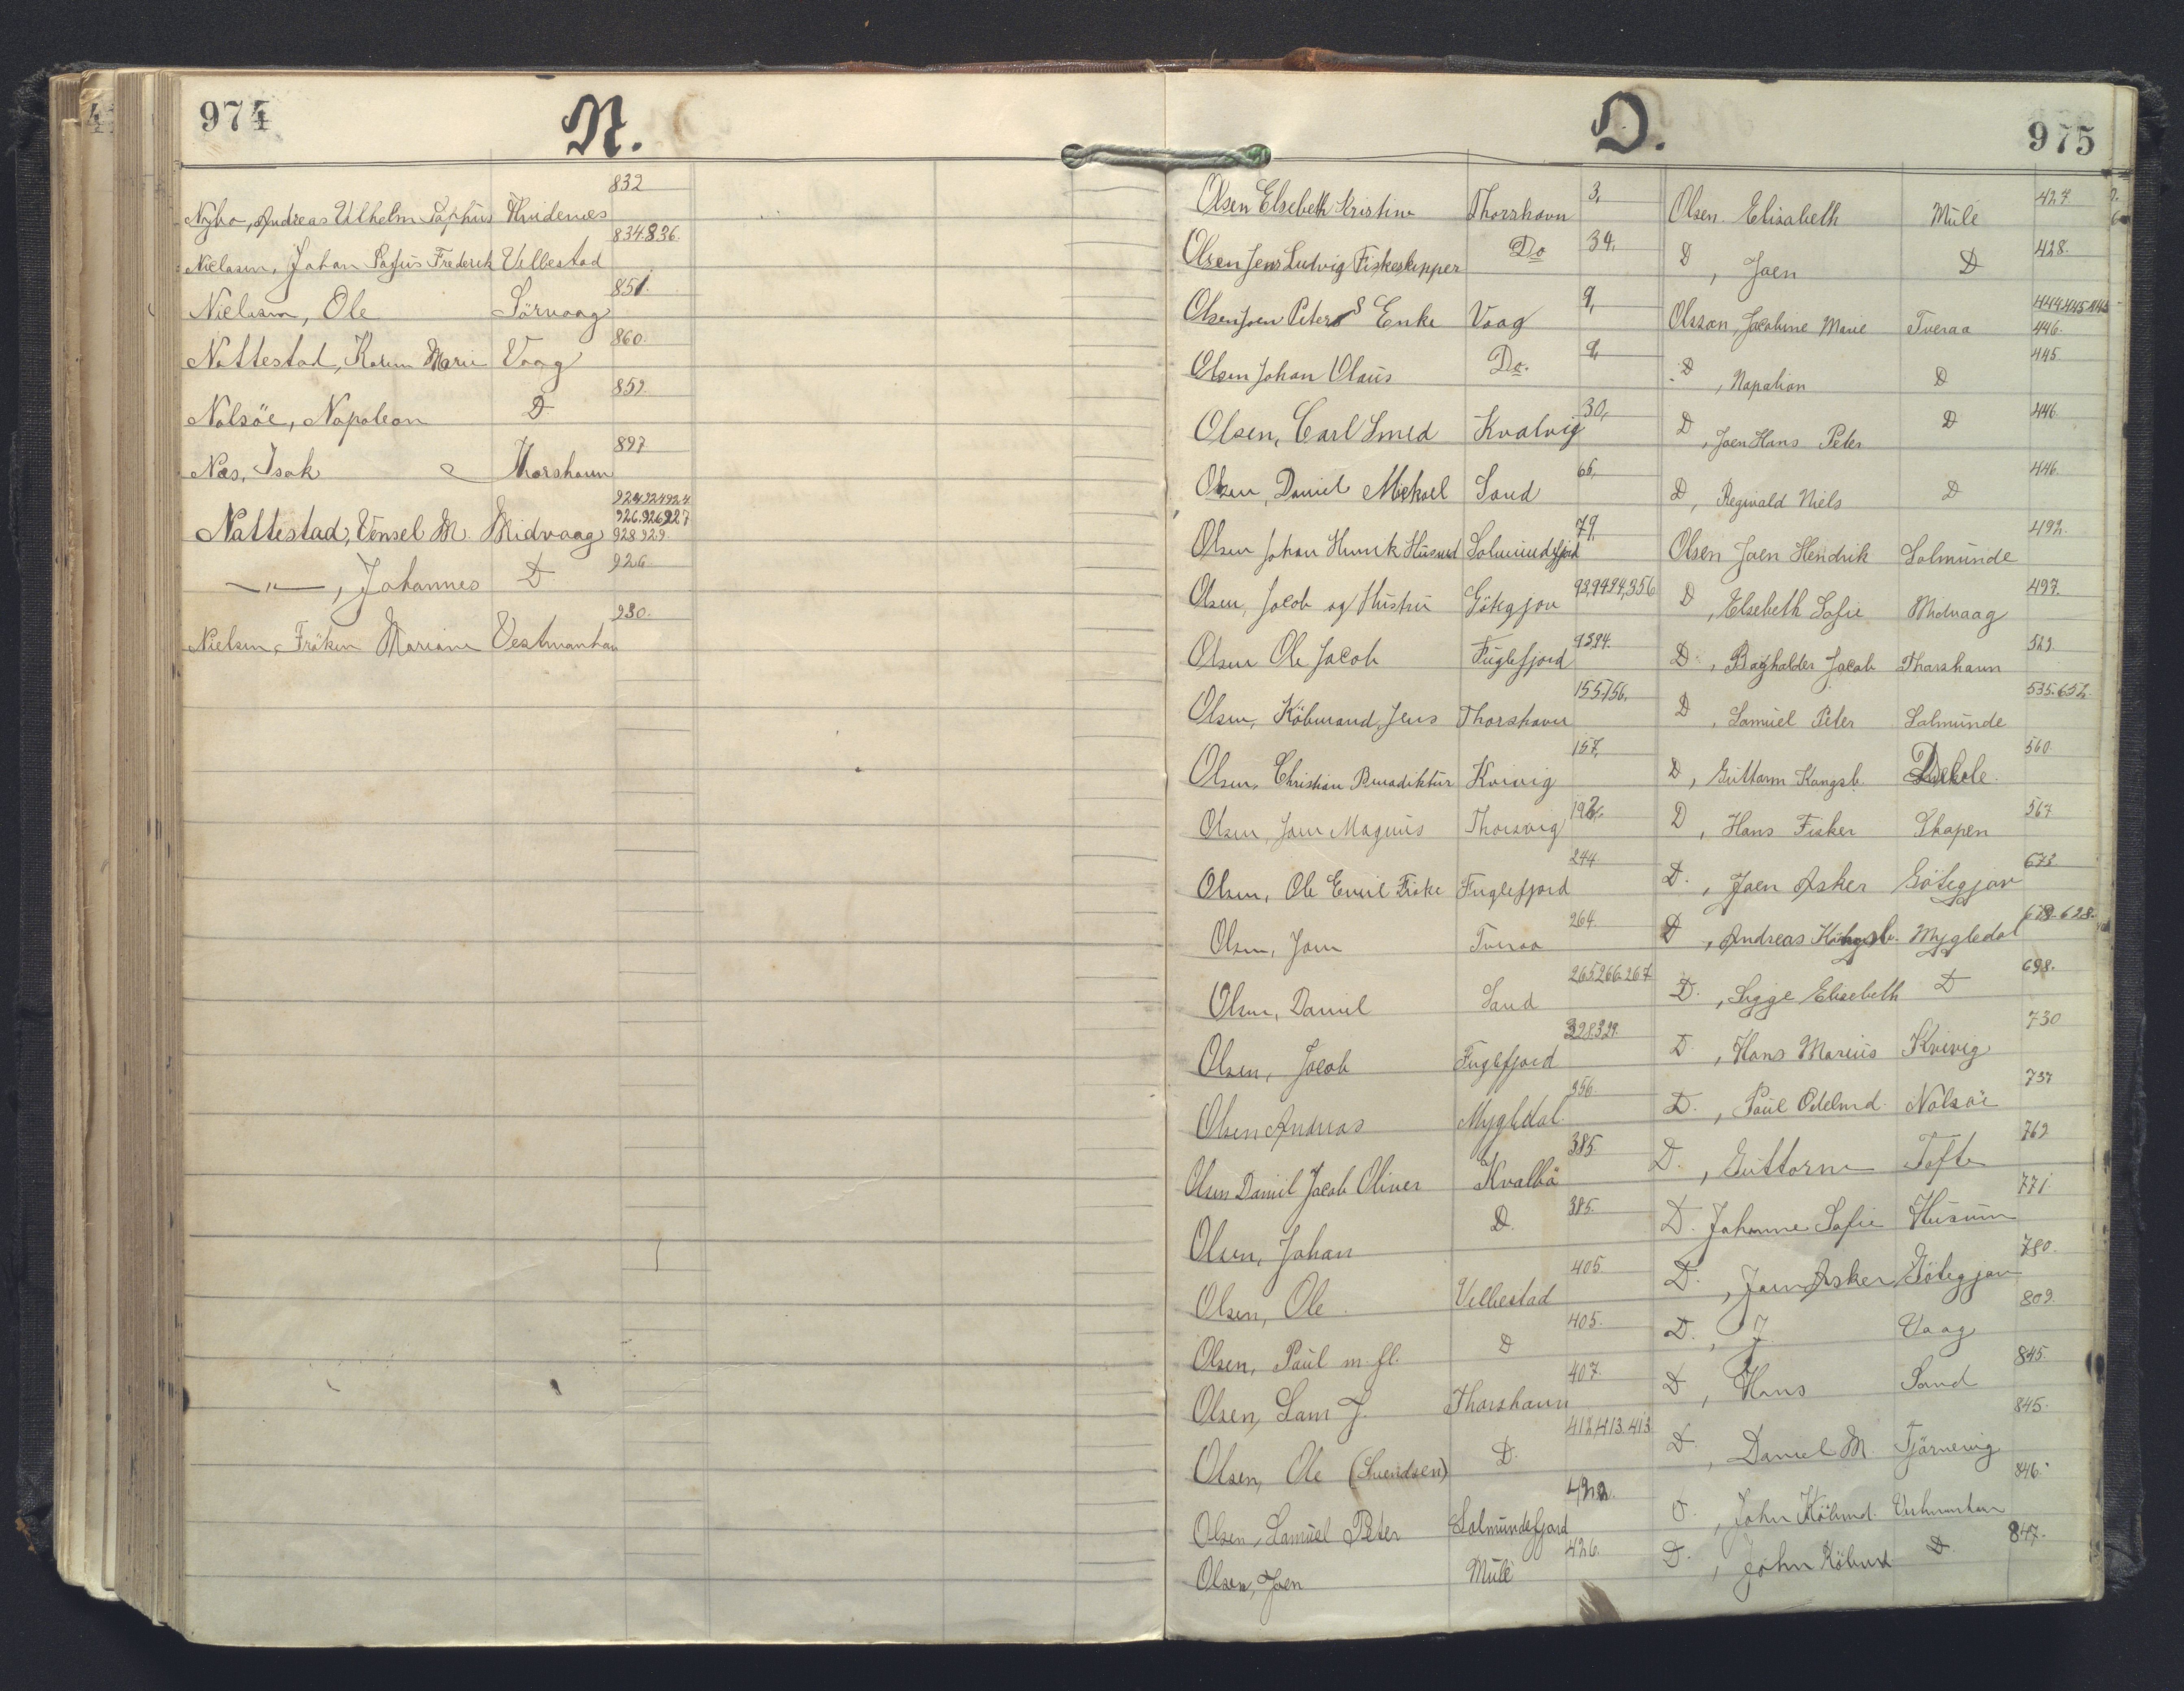 974
N.
Nybo, Andreas Vilhelm Sophus Hvidenæs 832
Nielasen, Johan Sofus Frederik Velbestad 834.836.
Nielasen, Ole Sörvaag 851.
Nattestad, Karen Marie Vaag 860.
Nolsöe, Napoleon D 852.
Næs, Isak Thorshavn 897
Nattestad, Vensel M. Midvaag 924 924 924 926.926 927 928 929.
—"—, Johannes D 926
Nielsen, Fröken Mariane Vestmanhav 930.
O.
975
Olsen Elsebeth Kristine Thorshavn 3,
Olsen Jens Ludvig Fiskeskipper Do 34,
Olsen Joen Peters Enke Vaag 9,
Olsen Johan Olaus Do. 9,
Olsen, Carl Smed Kvalvig 30,
Olsen, Daniel Mickael Sand 65,
Olsen Johan Henrik Husmd Solmundefjord 79,
Olsen, Jacob og Hustru Götegjov 93,94 94,356
Olsen Ole Jacob Fuglefjord 93,94.
Olsen, Köbmand, Jens Thorshavn 155,156,
Olsen, Christian Benadiktus Kvivig 157,
Olsen, Joen Magnus Thorsvig 192.
Olsen, Ole Emil Fiske Fuglefjord 244.
Olsen, Joen Tveraa 264.
Olsen, Daniel Sand 265 266 267
Olsen, Jacob Fuglefjord 328.329.
Olsen Andreas Mygledal 356.
Olsen Daniel Jacob Oliver Kvalbö 385.
Olsen, Johan D. 385.
Olsen, Ole Velbestad 405.
Olsen, Paul m. fl. D 405.
Olsen, Sam J. Thorshavn 407.
Olsen, Ole (Svendsen) D. 412,413.413
Olsen, Samuel Peter Solmundefjord 422.
Olsen, Joen Mule 426.
Olsen Elisabeth Mule 427
D, Joen D 428.
Olsson, Jacobine Marie Tveraa 444,445,445 446.
D, Napolion D 445.
D, Joen Hans Peter D 446.
D, Reginald Niels D 446.
Olsen Joen Hendrik Solmunde 492.
D, Elsebeth Sofie Midvaag 497.
D, Bogholder Jacob Thorshavn 523.
D, Samuel Peter Solmunde 535.652.
D, Guttorm Kongsb. Dekele. 560.
D, Hans Fisker Skapen 567
D., Joen Asker Götegjov 673
D, Andreas Kongsb. Mygledal 678-628.
D., Sigge Elisebeth D 698.
D., Hans Marius Kvivig 730
D., Paul Odelmd. Nolsöe 737
D., Guttorm Tofte 762
D. Johanne Sofie Husum 771
D., Joen Asker Götegjov 780.
D., J. Vaag 809.
D, Hans Sand 845.
D, Daniel M. Tjörnevig 845.
D., John Köbmd. Vestmanhav 846.
D., John Köbmd D. 847.